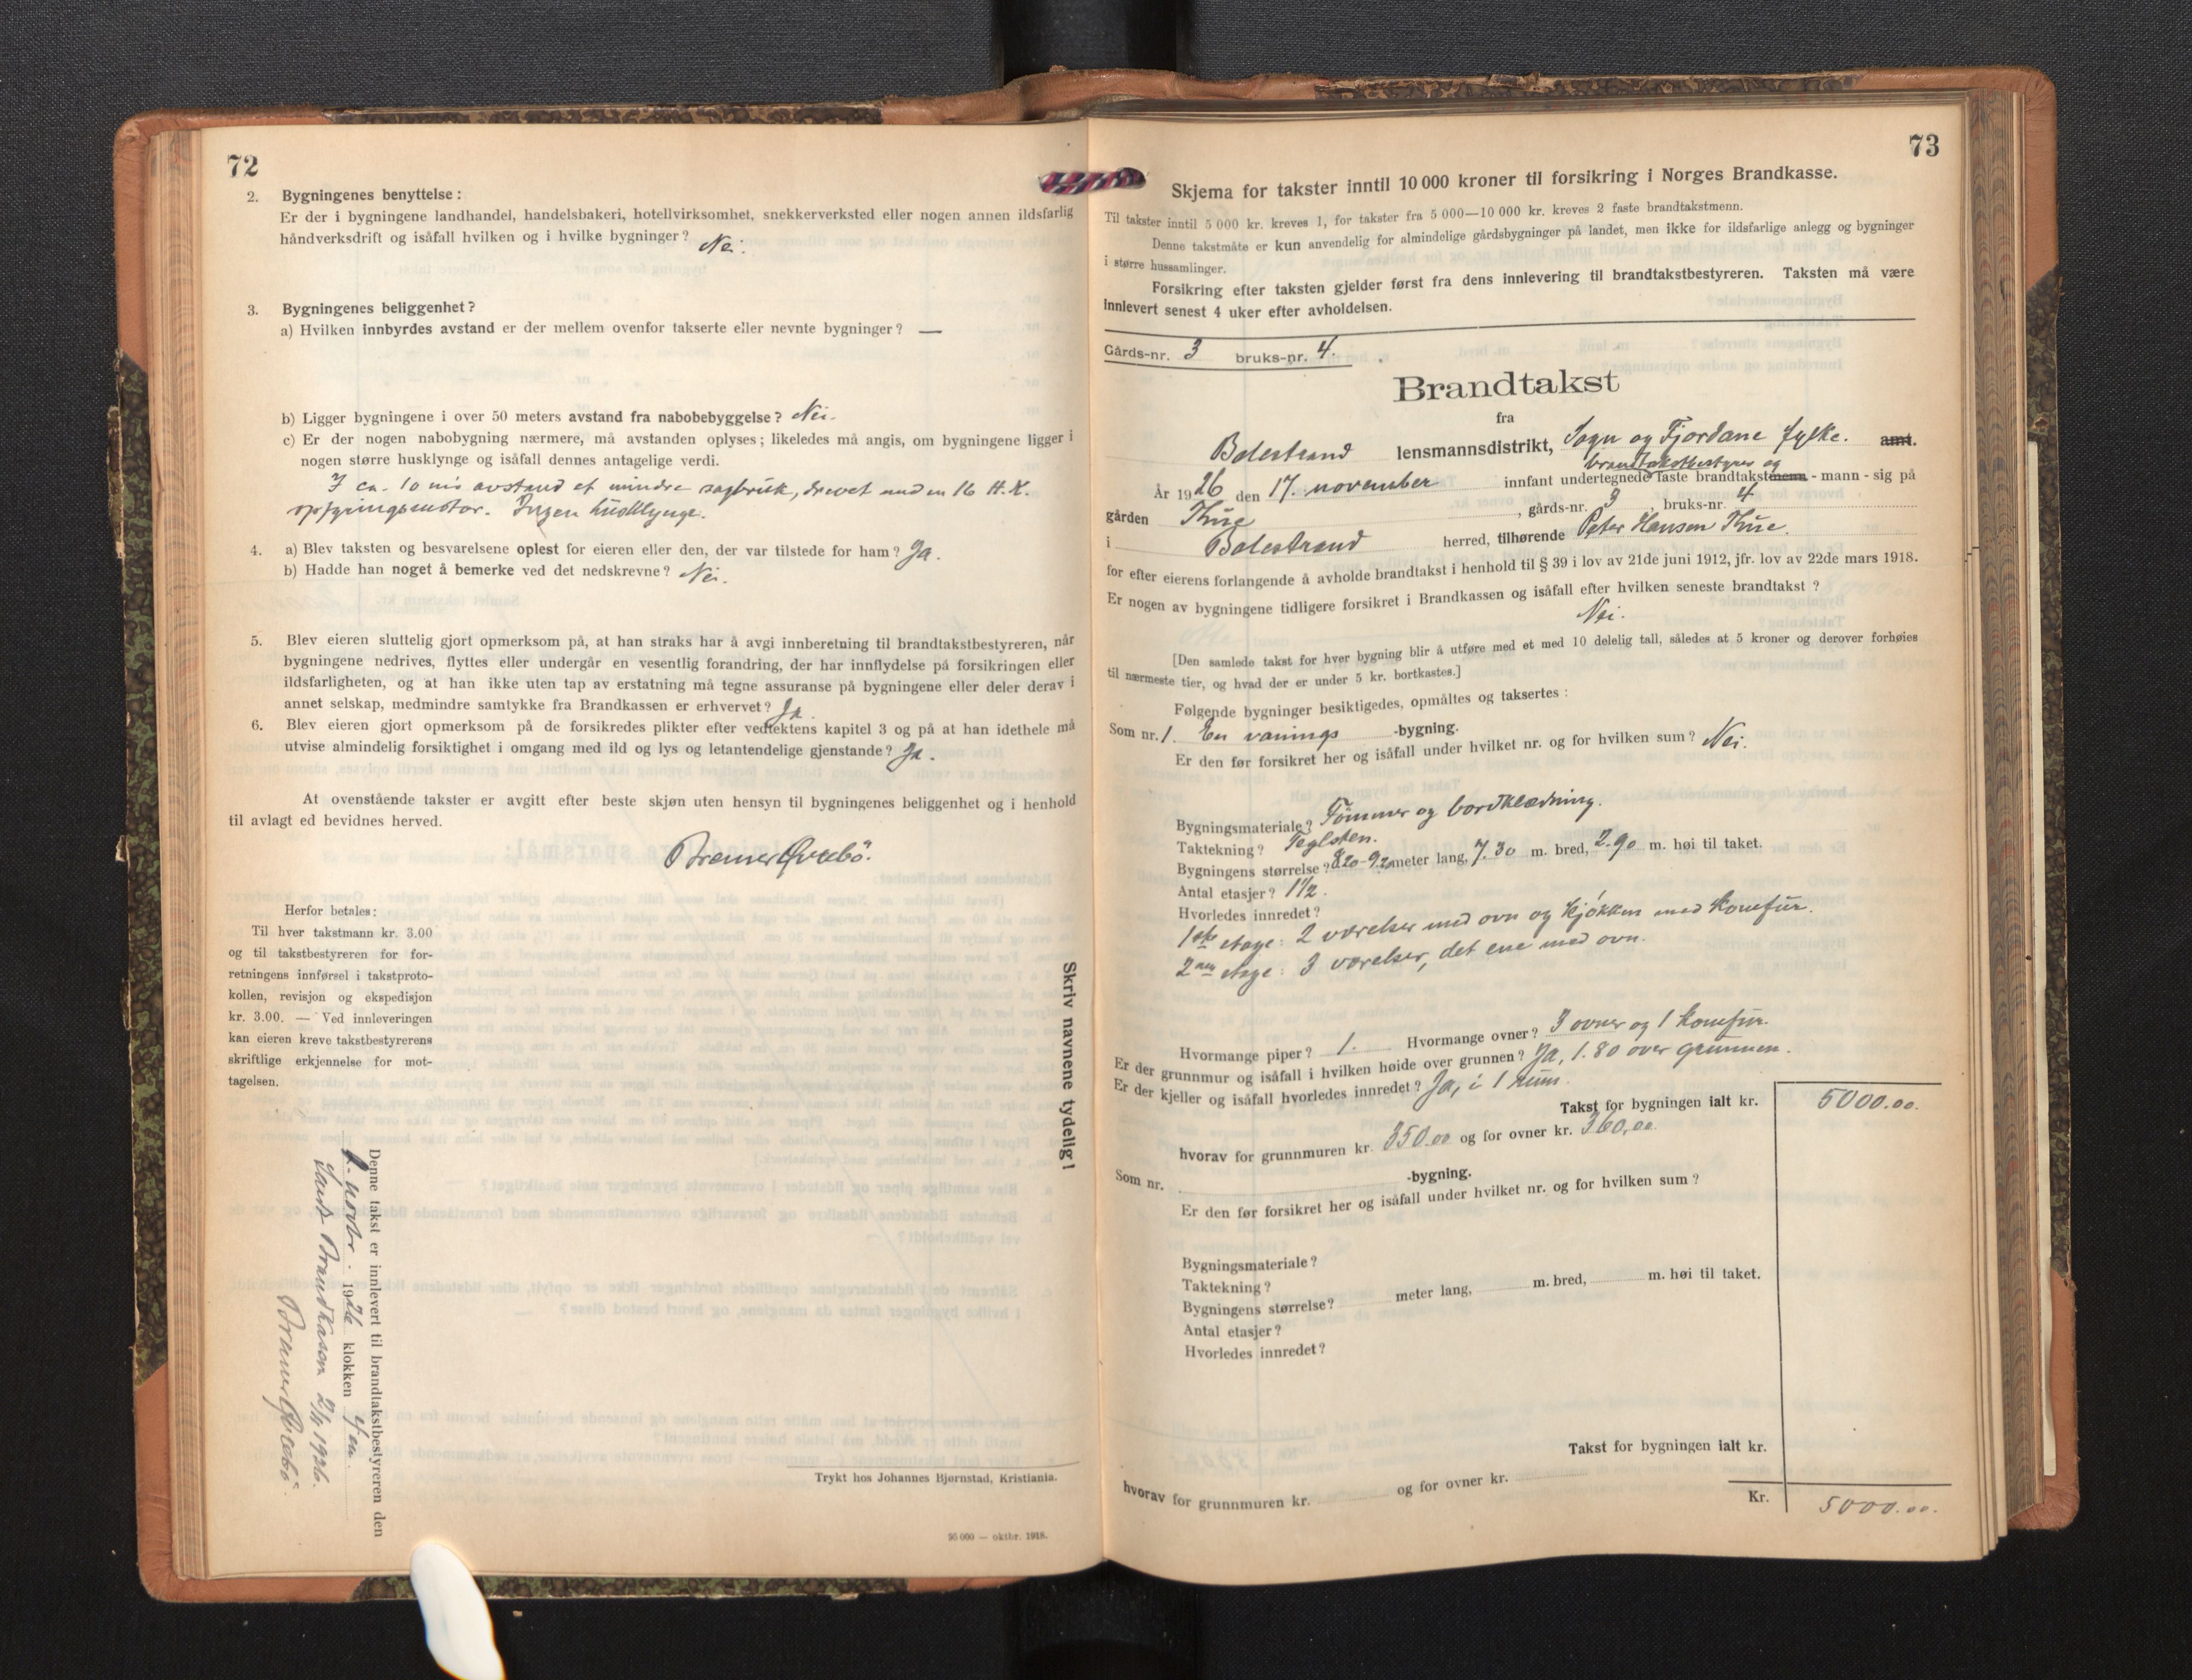 72
2. Bygningenes benyttelse :
Er der i bygningene landhandel, handelsbakeri, hotellvirksomhet, snekkerverksted eller nogen annen ildsfarlig
håndverksdrift og isåfall hvilken og i hvilke bygninger ? Nei.
3. Bygningenes beliggenhet ?
a) Hvilken innbyrdes avstand er der mellem ovenfor takserte eller nevnte bygninger ? —
b) Ligger bygningene i over 50 meters avstand fra nabobebyggelse ? Nei.
c) Er der nogen nabobygning nærmere, må avstanden oplyses ; likeledes må angis, om bygningene ligger i
nogen større husklynge og isåfall dennes antagelige verdi.
I ca. 10 m's avstand et mindre sagbruk, drevet med en 16 H.K.
opfyringsmotor. Ingen husklynge.
4. a) Blev taksten og besvarelsene oplest for eieren eller den, der var tilstede for ham ? Ja.
b) Hadde han noget å bemerke ved det nedskrevne ? Nei.
5. Blev eieren sluttelig gjort opmerksom på, at han straks har å avgi innberetning til brandtakstbestyreren, når
bygningene nedrives, flyttes eller undergår en vesentlig forandring, der har innflydelse på forsikringen eller
ildsfarligheten, og at han ikke uten tap av erstatning må tegne assuranse på bygningene eller deler derav i
annet selskap, medmindre samtykke fra Brandkassen er erhvervet ? Ja.
6. Blev eieren gjort opmerksom på de forsikredes plikter efter vedtektens kapitel 3 og på at han idethele må
utvise almindelig forsiktighet i omgang med ild og lys og letantendelige gjenstande ? Ja.
At ovenstående takster er avgitt efter beste skjøn uten hensyn til bygningenes beliggenhet og i henhold
til avlagt ed bevidnes herved.
Bremer Øvrebö.
Herfor betales :
Til hver takstmann kr. 3.00
og til takstbestyreren for for-
retningens innførsel i takstproto-
kollen, revisjon og ekspedisjon
kr. 3.00. — Ved innleveringen
kan eieren kreve takstbestyrerens
skriftlige erkjennelse for mot-
tagelsen.
Skriv navnene tydelig !
Denne takst er innlevert til brandtakstbestyreren den
novbr. 1926 klokken
Sendt Brandkassen 1926.
Bremer Øvrebö.
Trykt hos Johannes Bjørnstad, Kristiania.
95 000 — oktbr. 1918.
73
Skjema for takster inntil 10 000 kroner til forsikring i Norges Brandkasse.
Til takster inntil 5 000 kr. kreves 1, for takster fra 5 000—10 000 kr. kreves 2 faste brandtakstmenn.
Denne takstmåte er kun anvendelig for almindelige gårdsbygninger på landet, men ikke for ildsfarlige anlegg og bygninger
i større hussamlinger.
Forsikring efter taksten gjelder først fra dens innlevering til brandtakstbestyreren. Taksten må være
innlevert senest 4 uker efter avholdelsen.
Gårds-nr. 3 bruks-nr. 4.
Brandtakst
fra
Balestrand lensmannsdistrikt, Sogn og Fjordane fylke. amt.
brandtakstbestyrer og
År 1926 den 17. november innfant undertegnede faste brandtakstmenn - mann - sig på
gården Thue , gårds-nr. 3 , bruks-nr. 4
i Balestrand herred, tilhørende Peter Hansen Thue.
for efter eierens forlangende å avholde brandtakst i henhold til § 39 i lov av 21de juni 1912, jfr. lov av 22de mars 1918.
Er nogen av bygningene tidligere forsikret i Brandkassen og isåfall efter hvilken seneste brandtakst ?
Nei.
[Den samlede takst for hver bygning blir å utføre med et med 10 delelig tall, således at 5 kroner og derover forhøies
til nærmeste tier, og hvad der er under 5 kr. bortkastes.]
Følgende bygninger besiktigedes, opmåltes og taksertes :
Som nr. 1. En vånings -bygning.
Er den før forsikret her og isåfall under hvilket nr. og for hvilken sum ? Nei.
Bygningsmateriale ? Tømmer og bordklædning.
Taktekning ? Teglsten.
Bygningens størrelse ? 8.20-9.20 meter lang, 7.30 m. bred, 2.90 m. høi til taket.
Antal etasjer ? 1½.
Hvorledes innredet ?
1ste etage: 2 værelser med ovn og kjøkken med komfur.
2nen etage: 3 værelser, det ene med ovn.
Hvormange piper ? 1. Hvormange ovner ? 3 ovner og 1 komfur.
Er der grunnmur og isåfall i hvilken høide over grunnen ? Ja, 1.80 over grunnen.
Er der kjeller og isåfall hvorledes innredet ? Ja, i 1 rum.
Takst for bygningen ialt kr. 5000.00.
hvorav for grunnmuren kr. 350.00 og for ovner kr. 360.00.
Som nr. -bygning.
Er den før forsikret her og isåfall under hvilket nr. og for hvilken sum ?
Bygningsmateriale ?
Taktekning ?
Bygningens størrelse ? meter lang, m. bred, m. høi til taket.
Antal etasjer ?
Hvorledes innredet ?
Takst for bygningen ialt kr.
hvorav for grunnmuren kr. og for ovner kr.
Kr. 5000.00.